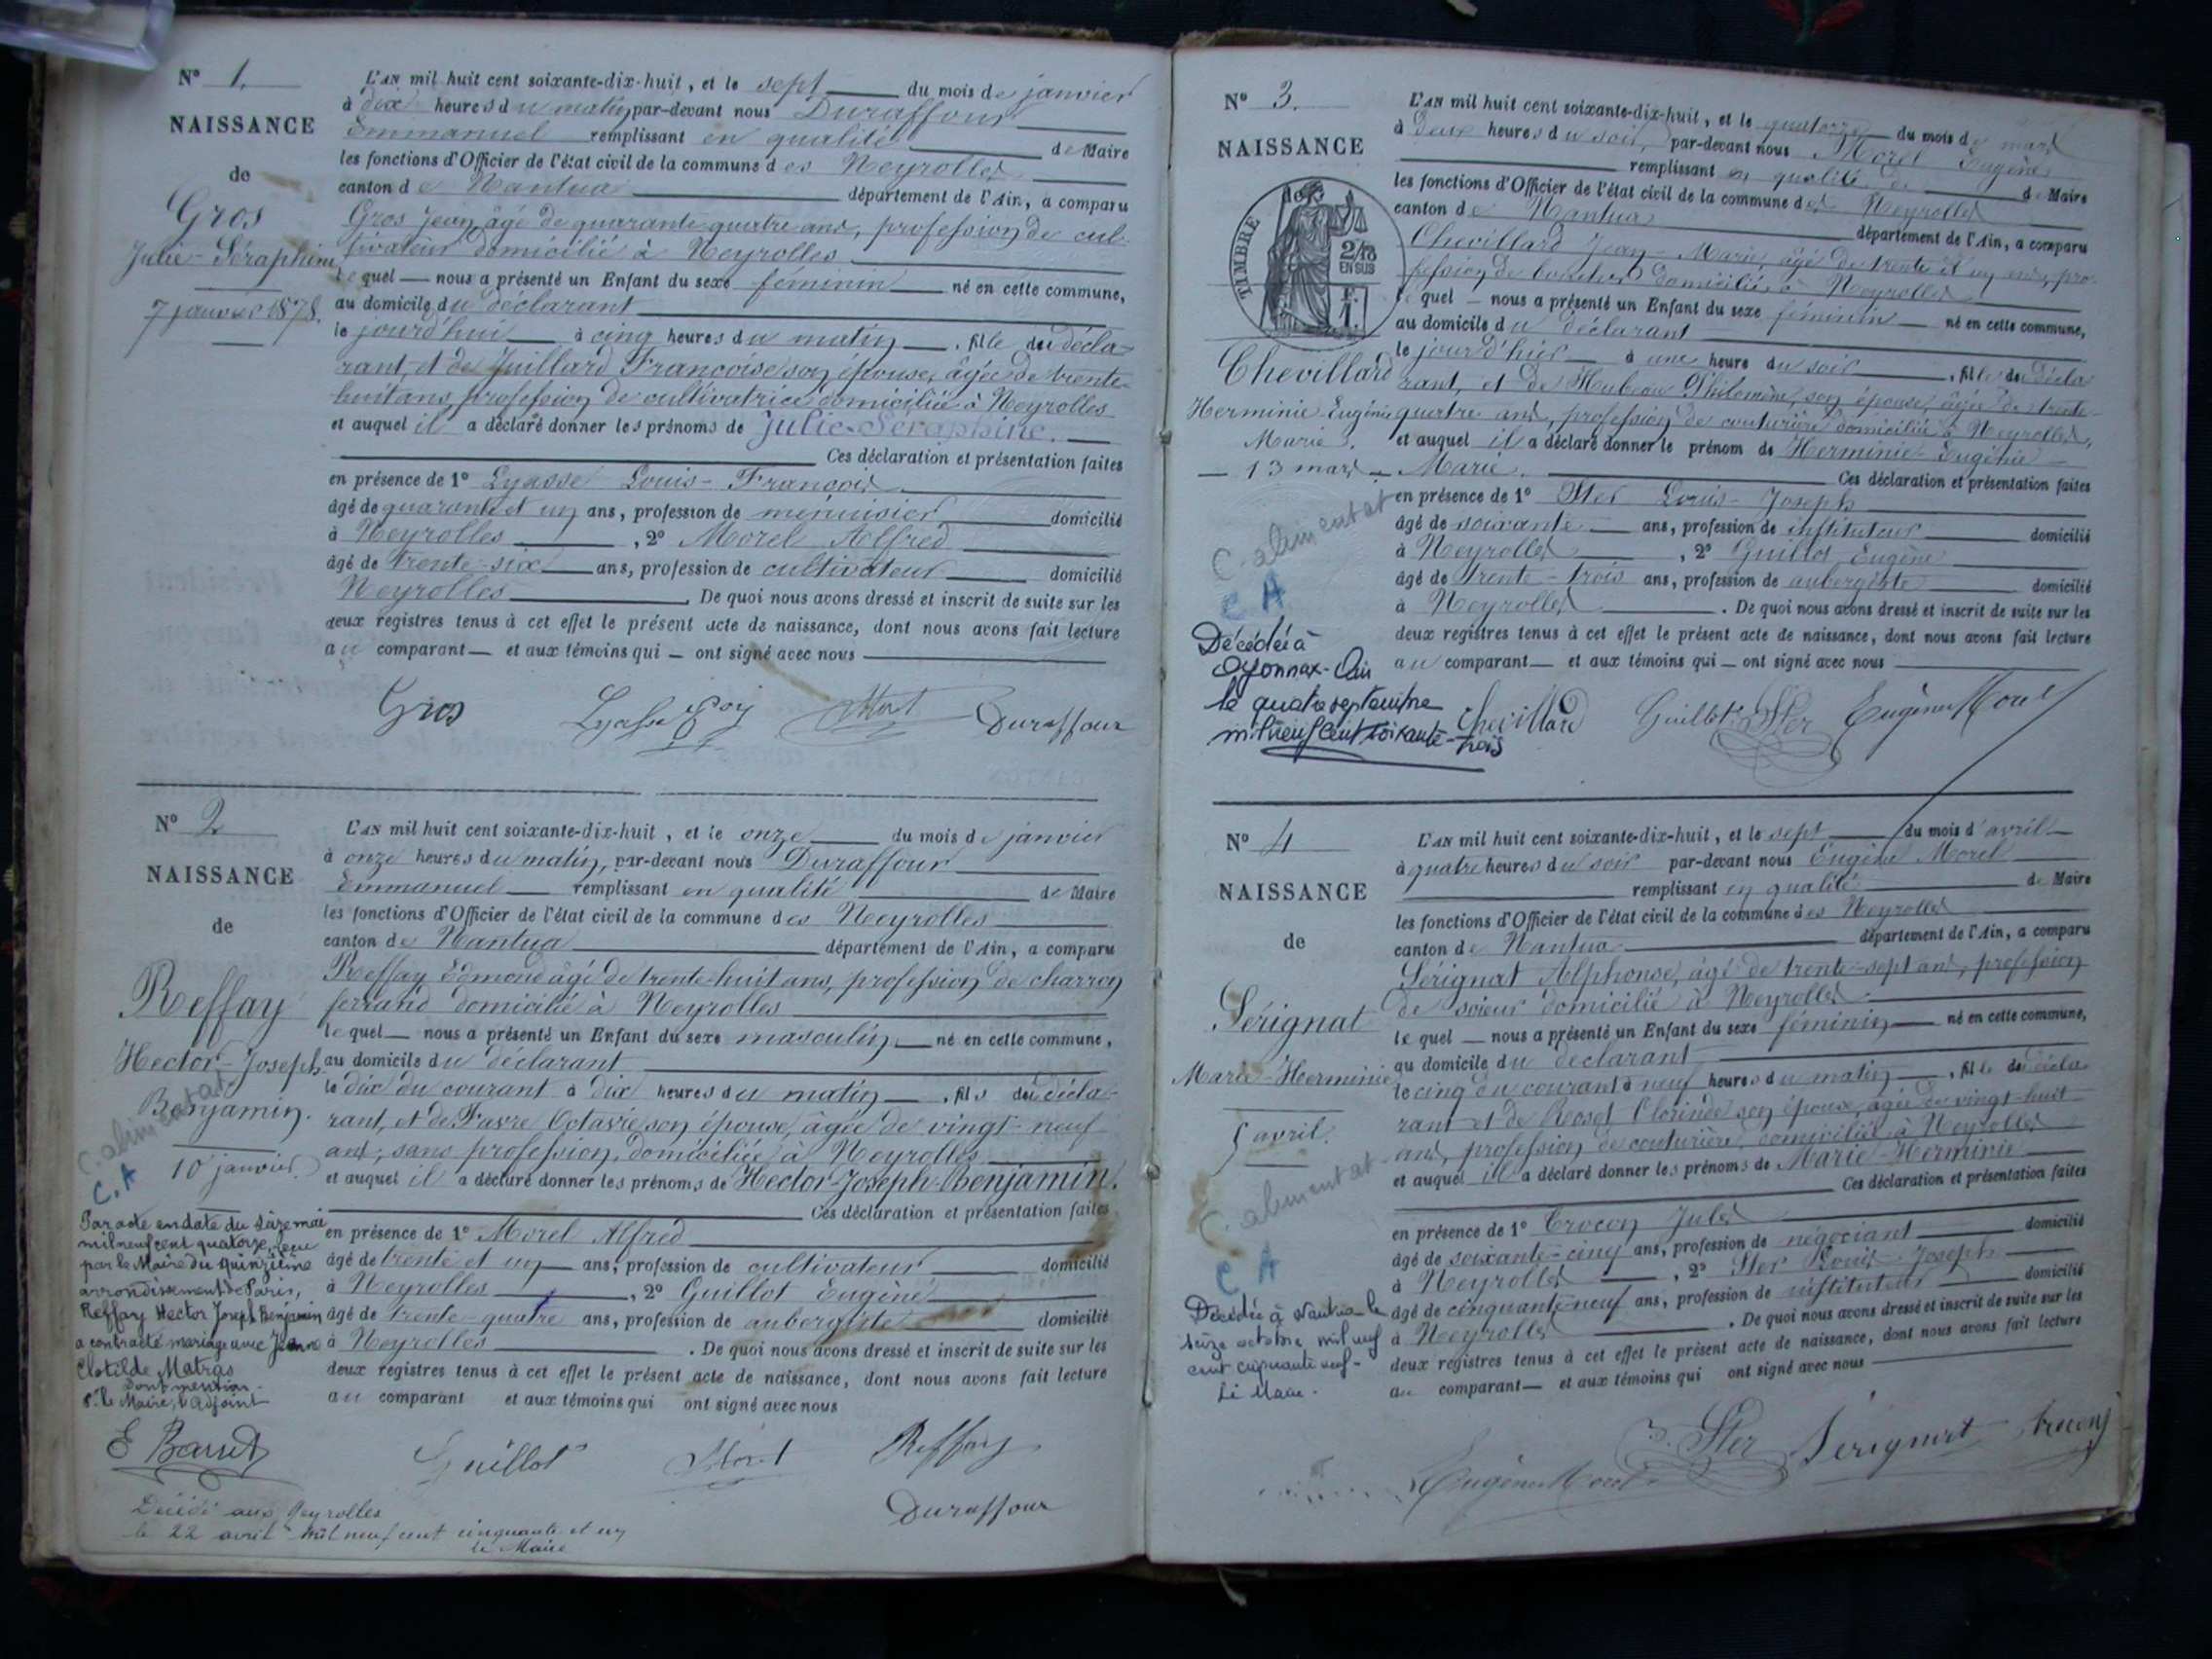 N° 1.
NAISSANCE
de
Gros
Julie-Séraphine
7 janvier 1878.
L'AN mil huit cent soixante-dix-huit, et le sept du mois de janvier
à dix heures du matin, par-devant nous Duraffour
Emmanuel remplissant en qualité de Maire
les fonctions d'Officier de l'état civil de la commune des Neyrolles
canton de Nantua département de l'Ain, a comparu
Gros Jean, âgé de quarante quatre ans, profession de cul-
tivateur domicilié à Neyrolles
lequel nous a présenté un Enfant du sexe féminin né en cette commune,
au domicile du déclarant
le jourd'hui à cinq heures du matin, fille du décla-
rant, et de Juillard Françoise son épouse, âgée de trente-
huit ans, profession de cultivatrice domiciliée à Neyrolles
et auquel il a déclaré donner les prénoms de Julie-Séraphine.
Ces déclaration et présentation faites
en présence de 1° Lyasse Louis-François
âgé de quarante et un ans, profession de menuisier domicilié
à Neyrolles, 2° Morel Alfred
âgé de trente-six ans, profession de cultivateur domicilié
Neyrolles. De quoi nous avons dressé et inscrit de suite sur les
deux registres tenus à cet effet le présent acte de naissance, dont nous avons fait lecture
au comparant et aux témoins qui ont signé avec nous
Gros Duraffour
N° 2
NAISSANCE
de
Reffay
Hector-Joseph
Benjamin.
10 janvier.
C. alimentat
C.A
Par acte en date du seize mai
mil neuf cent quatorze, reçu
par le Maire du quinzième
arrondissement de Paris,
Reffay Hector Joseph Benjamin
a contracté mariage avec Jeanne
Clotilde Matras
Dont mention.
P. le Maire, l'adjoint
Décédé aux Neyrolles
le 22 avril mil neuf cent cinquante et un
le Maire
L'AN mil huit cent soixante-dix-huit, et le onze du mois de janvier
à onze heures du matin, par-devant nous Duraffour
Emmanuel remplissant en qualité de Maire
les fonctions d'Officier de l'état civil de la commune des Neyrolles
canton de Nantua département de l'Ain, a comparu
Reffay Edmond âgé de trente-huit ans, profession de charron
ferrand domicilié à Neyrolles
lequel nous a présenté un Enfant du sexe masculin, né en cette commune,
au domicile du déclarant
le dix du courant à dix heures du matin, fils du décla-
rant, et de Favre Octavie son épouse, âgée de vingt-neuf
ans, sans profession, domiciliée à Neyrolles
et auquel il a déclaré donner les prénoms de Hector-Joseph-Benjamin.
Ces déclaration et présentation faites
en présence de 1° Morel Alfred
âgé de trente et un ans, profession de cultivateur domicilié
à Neyrolles, 2° Guillot Eugène
âgé de trente-quatre ans, profession de aubergiste domicilié
à Neyrolles. De quoi nous avons dressé et inscrit de suite sur les
deux registres tenus à cet effet le présent acte de naissance, dont nous avons fait lecture
au comparant et aux témoins qui ont signé avec nous
Guillot Morel Reffay
Duraffour
N° 3.
NAISSANCE
de
TIMBRE
2/10
EN SUS
F.
1.
Chevillard
Herminie-Eugénie
Marie.
13 mars
C. alimentat
C A
Décédée à
Oyonnax-Ain
le quatre septembre
mil neuf cent soixante-trois
L'AN mil huit cent soixante-dix-huit, et le quatorze du mois de mars
à deux heures du soir, par-devant nous Morel Eugène
remplissant en qualité de de Maire
les fonctions d'Officier de l'état civil de la commune des Neyrolles
canton de Nantua département de l'Ain, a comparu
Chevillard Jean-Marie âgé de trente et un ans, pro-
fession de domicilié à Neyrolles
lequel nous a présenté un Enfant du sexe féminin né en cette commune,
au domicile du déclarant
le jour d'hier à une heure du soir, fille du décla
rant, et de Philomène, son épouse, âgée de trente-
quatre ans, profession de couturière domiciliée à Neyrolles,
et auquel il a déclaré donner le prénom de Herminie-Eugénie-
Marie. Ces déclaration et présentation faites
en présence de 1° Ster Louis-Joseph
âgé de soixante ans, profession de instituteur domicilié
à Neyrolles, 2° Guillot Eugène
âgé de trente-trois ans, profession de aubergiste domicilié
à Neyrolles. De quoi nous avons dressé et inscrit de suite sur les
deux registres tenus à cet effet le présent acte de naissance, dont nous avons fait lecture
au comparant et aux témoins qui ont signé avec nous
Chevillard Guillot Ster Eugène Morel
N° 4
NAISSANCE
de
Sérignat
Marie-Herminie
5 avril.
C. alimentat
C A
Décédée à Nantua le
seize octobre mil neuf
cent cinquante neuf-
Le Maire.
L'AN mil huit cent soixante-dix-huit, et le sept du mois d'avril
à quatre heures du soir par-devant nous Eugène Morel
remplissant en qualité de Maire
les fonctions d'Officier de l'état civil de la commune des Neyrolles
canton de Nantua département de l'Ain, a comparu
Sérignat Alphonse, âgé de trente-sept ans, profession
de scieur domicilié à Neyrolles
lequel nous a présenté un Enfant du sexe féminin né en cette commune,
au domicile du déclarant
le cinq du courant à neuf heures du matin, fille du décla
rant et de Clorinde son épouse, âgée de vingt-huit
ans, profession de couturière, domiciliée à Neyrolles
et auquel il a déclaré donner les prénoms de Marie-Herminie
Ces déclaration et présentation faites
en présence de 1° Crocon Jules
âgé de soixante-cinq ans, profession de négociant domicilié
à Neyrolles, 2° Ster Louis-Joseph
âgé de cinquante-neuf ans, profession de instituteur domicilié
à Neyrolles. De quoi nous avons dressé et inscrit de suite sur les
deux registres tenus à cet effet le présent acte de naissance, dont nous avons fait lecture
au comparant et aux témoins qui ont signé avec nous
Eugène Morel Ster Sérignat